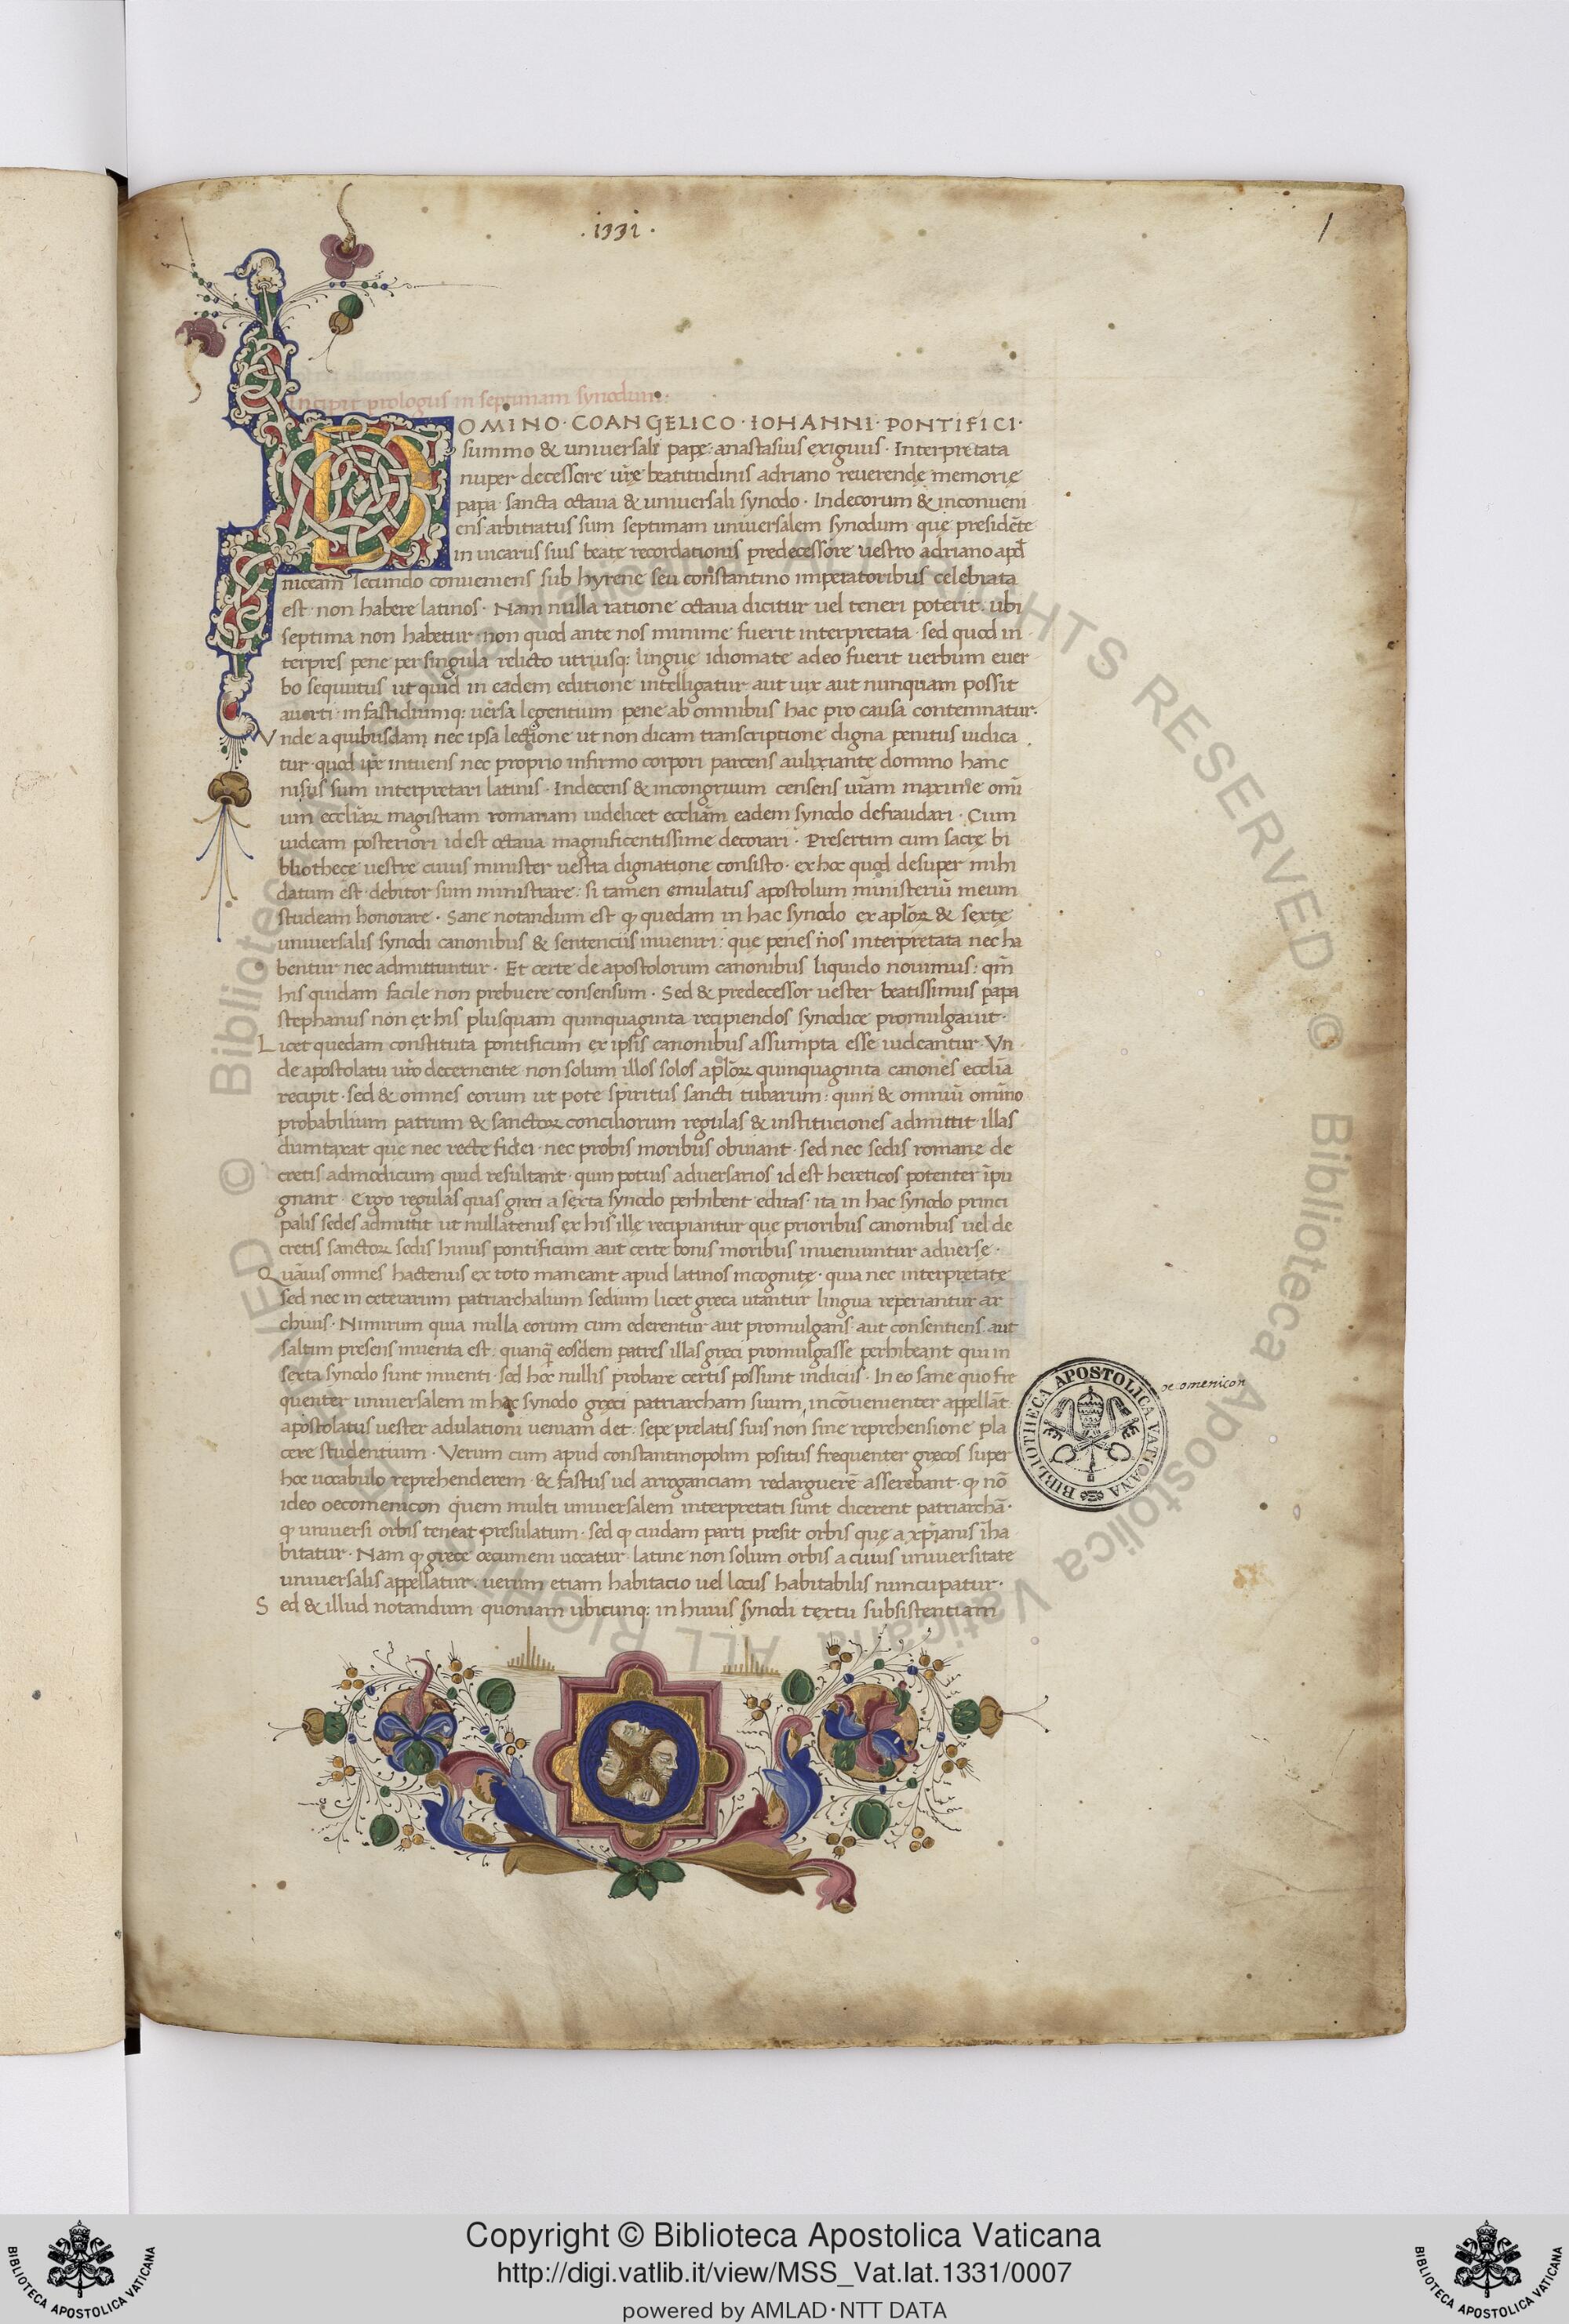 .1331.
1
Incipit prologus in septimam synodum:
DOMINO·COANGELICO·IOHANNI·PONTIFICI·
summo & uniuersali pape: anastasius exiguus· Interpretata
nuper decessore ur̄ę beatitudinis adriano reuerendę memorię
papa sancta octaua & uniuersali synodo· Indecorum & inconueni
ens arbitratus sum septimam uniuersalem synodum quę presidēte
in uicariis suis beatę recordationis predecessore uestro adriano apđ
niceam secundo conueniens sub hyrene seu constantino imperatoribus celebrata
est· non habere latinos· Nam nulla ratione octaua dicitur uel teneri poterit· ubi
septima non habetur· non quod ante nos minime fuerit interpretata· sed quod in
terpres pene per singula relicto utriusq; linguę idiomate adeo fuerit uerbum e uer
bo sequutus ut quid in eadem editione intelligatur aut uix aut nunquam possit
auerti· in fastidiumq; uersa legentium pene ab omnibus hac pro causa contemnatur·
Vnde a quibusdam nec ipsa lectione ut non dicam transcriptione digna penitus iudica
tur· quod ip̄e intuens nec proprio infirmo corpori parcens auxiliante domino hanc
nisus sum interpretari latinis· Indecens & incongruum censens ur̄am maxime omī
um eccl̄iaꝝ magistram romanam uidelicet eccl̄iam eadem synodo defraudari· Cum
uideam posteriori id est octaua magnificentissime decorari· Presertim cum sacrę bi
bliothecę uestrę cuius minister uestra dignatione consisto· ex hoc quod desuper mihi
datum est· debitor sum ministrare: si tamen emulatus apostolum ministeriū meum
studeam honorare· Sane notandum est ꝙ quedam in hac synodo ex aplōꝝ & sextę
uniuersalis synodi canonibus & sentenciis inueniri: quę penes nos interpretata nec ha
bentur nec admittuntur· Et certe de apostolorum canonibus liquido nouimus: qm̄
his quidam facile non prebuere consensum· Sed & predecessor uester beatissimus papa
stephanus non ex his plusquam quinquaginta recipiendos synodice promulgauit·
Licet quedam constituta pontificum ex ipsis canonibus assumpta esse uideantur· Vn
de apostolatu ur̄o decernente non solum illos solos aplōꝝ quinquaginta canones eccl̄ia
recipit· sed & omnes eorum ut pote spiritus sancti tubarum: quin & omniū omīno
probabilium patrum & sanctoꝝ conciliorum regulas & instituciones admittit· illas
dumtaxat quę nec rectę fidei· nec probis moribus obuiant· sed nec sedis romanę de
cretis ad modicum quid resultant· quin potius aduersarios id est hereticos potenter īpu
gnant· Ergo regulas quas greci a sexta synodo perhibent editas· ita in hac synodo princi
palis sedes admittit ut nullatenus ex his illę recipiantur quę prioribus canonibus uel de
cretis sanctoꝝ sedis huius pontificum aut certe bonis moribus inueniuntur aduersę·
Quāuis omnes hactenus ex toto maneant apud latinos incognitę· quia nec interpretatę
sed nec in ceterarum patriarchalium sedium licet greca utantur lingua reperiantur ar
chiuis· Nimirum quia nulla eorum cum ederentur aut promulgans· aut consentiens· aut
saltim presens inuenta est· quanq̄ eosdem patres illas greci promulgasse perhibeant qui in
sexta synodo sunt inuenti· sed hoc nullis probare certis possunt indiciis· In eo sane quo fre
quenter uniuersalem in hac synodo gręci patriarcham suum, incōuenienter appellāt·
apostolatus uester adulationi ueniam det· sepe prelatis suis non sine reprehensione pla
cere studentium· Verum cum apud constantinopolim positus frequenter grecos super
hoc uocabulo reprehenderem· & fastus uel arroganciam redarguerē asserebant· ꝙ nō
ideo oecomenicon quem multi uniuersalem interpretati sunt dicerent patriarchā·
ꝙ uniuersi orbis teneat presulatum· sed ꝙ cuidam parti presit orbis quę a xp̄ianis īha
bitatur· Nam ꝙ grece oecumeni uocatur· latine non solum orbis a cuius uniuersitate
uniuersalis appellatur· uerum etiam habitacio uel locus habitabilis nuncupatur·
Sed & illud notandum quoniam ubicunq; in huius synodi textu subsistentiam
oecomenicon
BIBLIOTHECA APOSTOLICA VATICANA
© Biblioteca Apostolica Vaticana ALL RIGHTS RESERVED © Biblioteca Apostolica Vaticana ALL RIGHTS RESERVED
Copyright © Biblioteca Apostolica Vaticana
http://digi.vatlib.it/view/MSS_Vat.lat.1331/0007
powered by AMLAD·NTT DATA
BIBLIOTECA APOSTOLICA VATICANA
BIBLIOTECA APOSTOLICA VATICANA